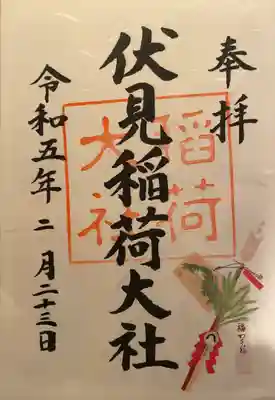 奉拝
伏見稲荷大社
稲荷
大社
令和五年二月二十三日